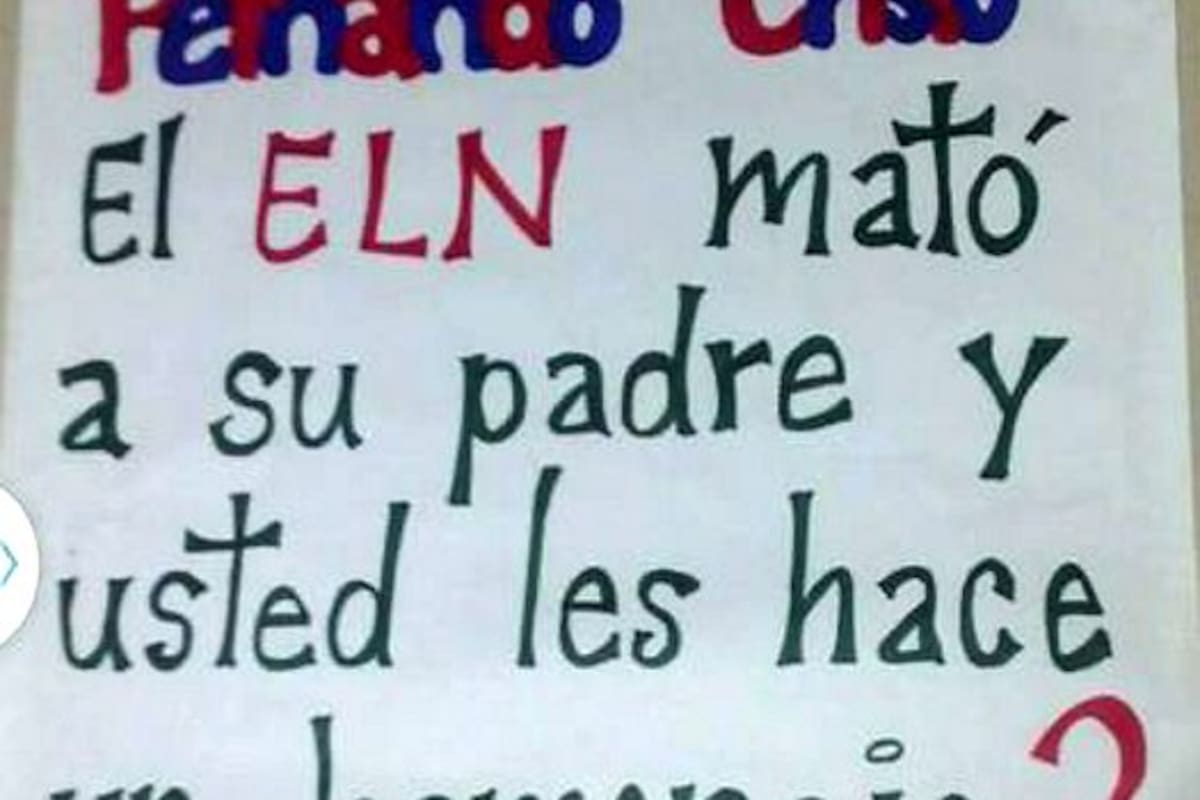 Fernando Cristo
El ELN mató
a su padre y
usted les hace
un homenaje?